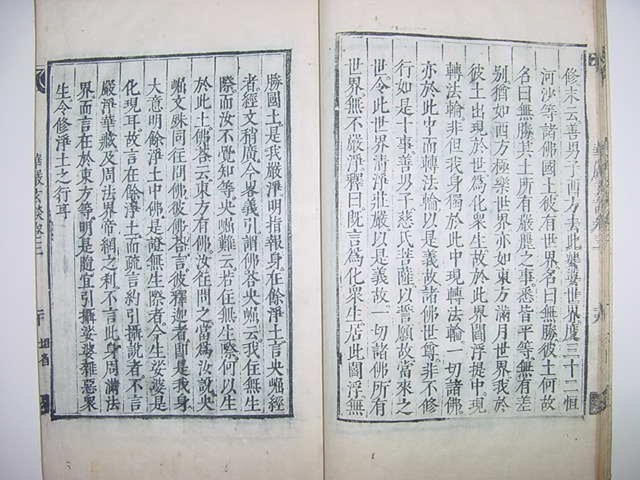 修末云善男子西方去此娑婆世界度三十二恒
河沙等諸佛國土彼有世界名曰無勝彼土何故
名曰無勝其土所有嚴麗之事悉皆平等無有差
別猶如西方極樂世界亦如東方滿月世界我於
彼土出現於世為化眾生故於此界閻浮提中現
轉法輪非但我身獨於此中現轉法輪一切諸佛
亦於此中而轉法輪以是義故諸佛世尊非不修
行如是十事善男子慈氏菩薩以誓願故當來之
世令此世界清淨莊嚴以是義故一切諸佛所有
世界無不嚴淨釋曰既言為化眾生居此閻浮無
勝國土是我嚴淨明指報身在餘淨土言央崛經
者經文稍廣今畧義引謂佛答央崛云我住無生
際而汝不覺知等央崛難云若住無生際何以生
於此土佛答云東方有佛汝往問之當為汝說央
崛文殊同往問佛彼佛答言彼釋迦者即是我身
大意明餘淨土中佛是證無生際者今生娑婆是
化現耳故言在餘淨土而疏言約引攝者不言
嚴淨華藏及周法界帝網之利不言此身周滿法
界而言在於東方等明是隨宜引攝娑婆雜惡眾
生令修淨土之行耳
華嚴玄談卷三